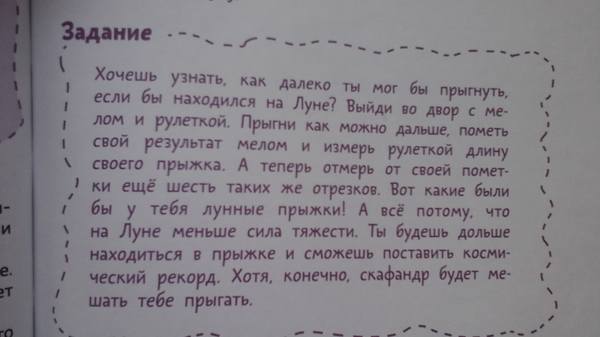 Задание
Хочешь узнать, как далеко ты мог бы прыгнуть,
если бы находился на Луне? Выйди во двор с ме-
лом и рулеткой. Прыгни как можно дальше, пометь
свой результат мелом и измерь рулеткой длину
своего прыжка. А теперь отмерь от своей помет-
ки ещё шесть таких же отрезков. Вот какие были
бы у тебя лунные прыжки! А всё потому, что
на Луне меньше сила тяжести. Ты будешь дольше
находиться в прыжке и сможешь поставить косми-
ческий рекорд. Хотя, конечно, скафандр будет ме-
шать тебе прыгать.